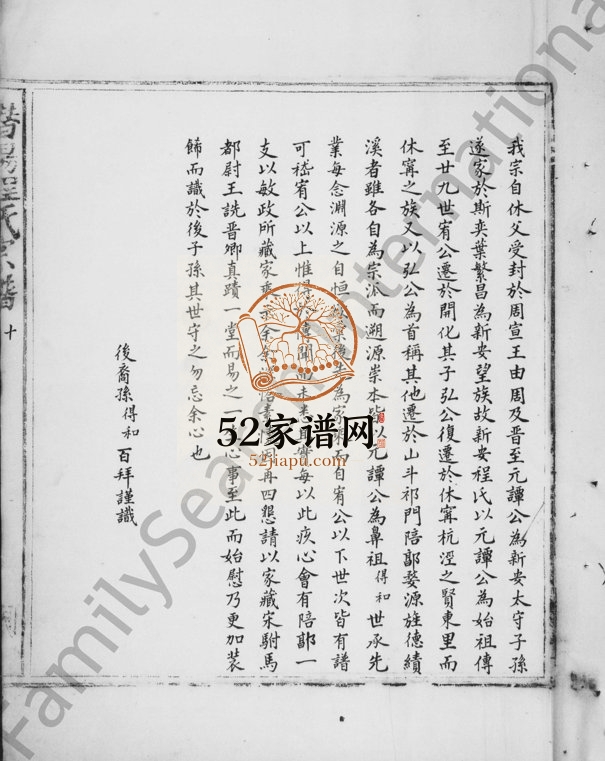 我宗自休父受封於周宣王由周及晉至元譚公為新安太守子孫
遂家於斯奕葉繁昌為新安望族故新安程氏以元譚公為始祖傳
至廿九世宥公遷於開化其子弘公復遷於休寧杭溪之賢東里而
休寧之族又以弘公為首稱其他遷於山斗祁門陪郭婺源旌德績
溪者雖各自為宗派而遡源崇本皆以元譚公為鼻祖得和世承先
業每念淵源之自恒 為家 而自宥公以下世次皆有譜
可嵇宥公以上惟得 聞而未 每以此疚心會有陪郭一
支以敏政所藏家 再四懇請以家藏宋駙馬
都尉王詵晉卿真蹟一堂而易之 心事至此而始慰乃更加裝
飾而識於後子孫其世守之勿忘余心也
後裔孫得和百拜謹識
程氏宗譜
十
52家谱网
52jiapu.com
FamilySearch International